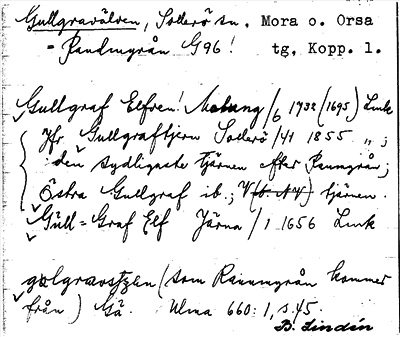 Gullgravälven, Sollerö sn. Mora o. Orsa
= Rundmyrån G96! tg. Kopp. l.
Gullgraf Elfven! Malung /6 1732 (1695) Link
Jfr Gullgraftjern Sollerö /41 1855 " ;
den sydligaste tjärnen efter
Östra Gullgraf ib.; V tjärnen.
Gull-Graf Elf Järna /1 1656 Link
(som kommer
från) Gä. Ulma 660:1, s. 45.
B. Lindén